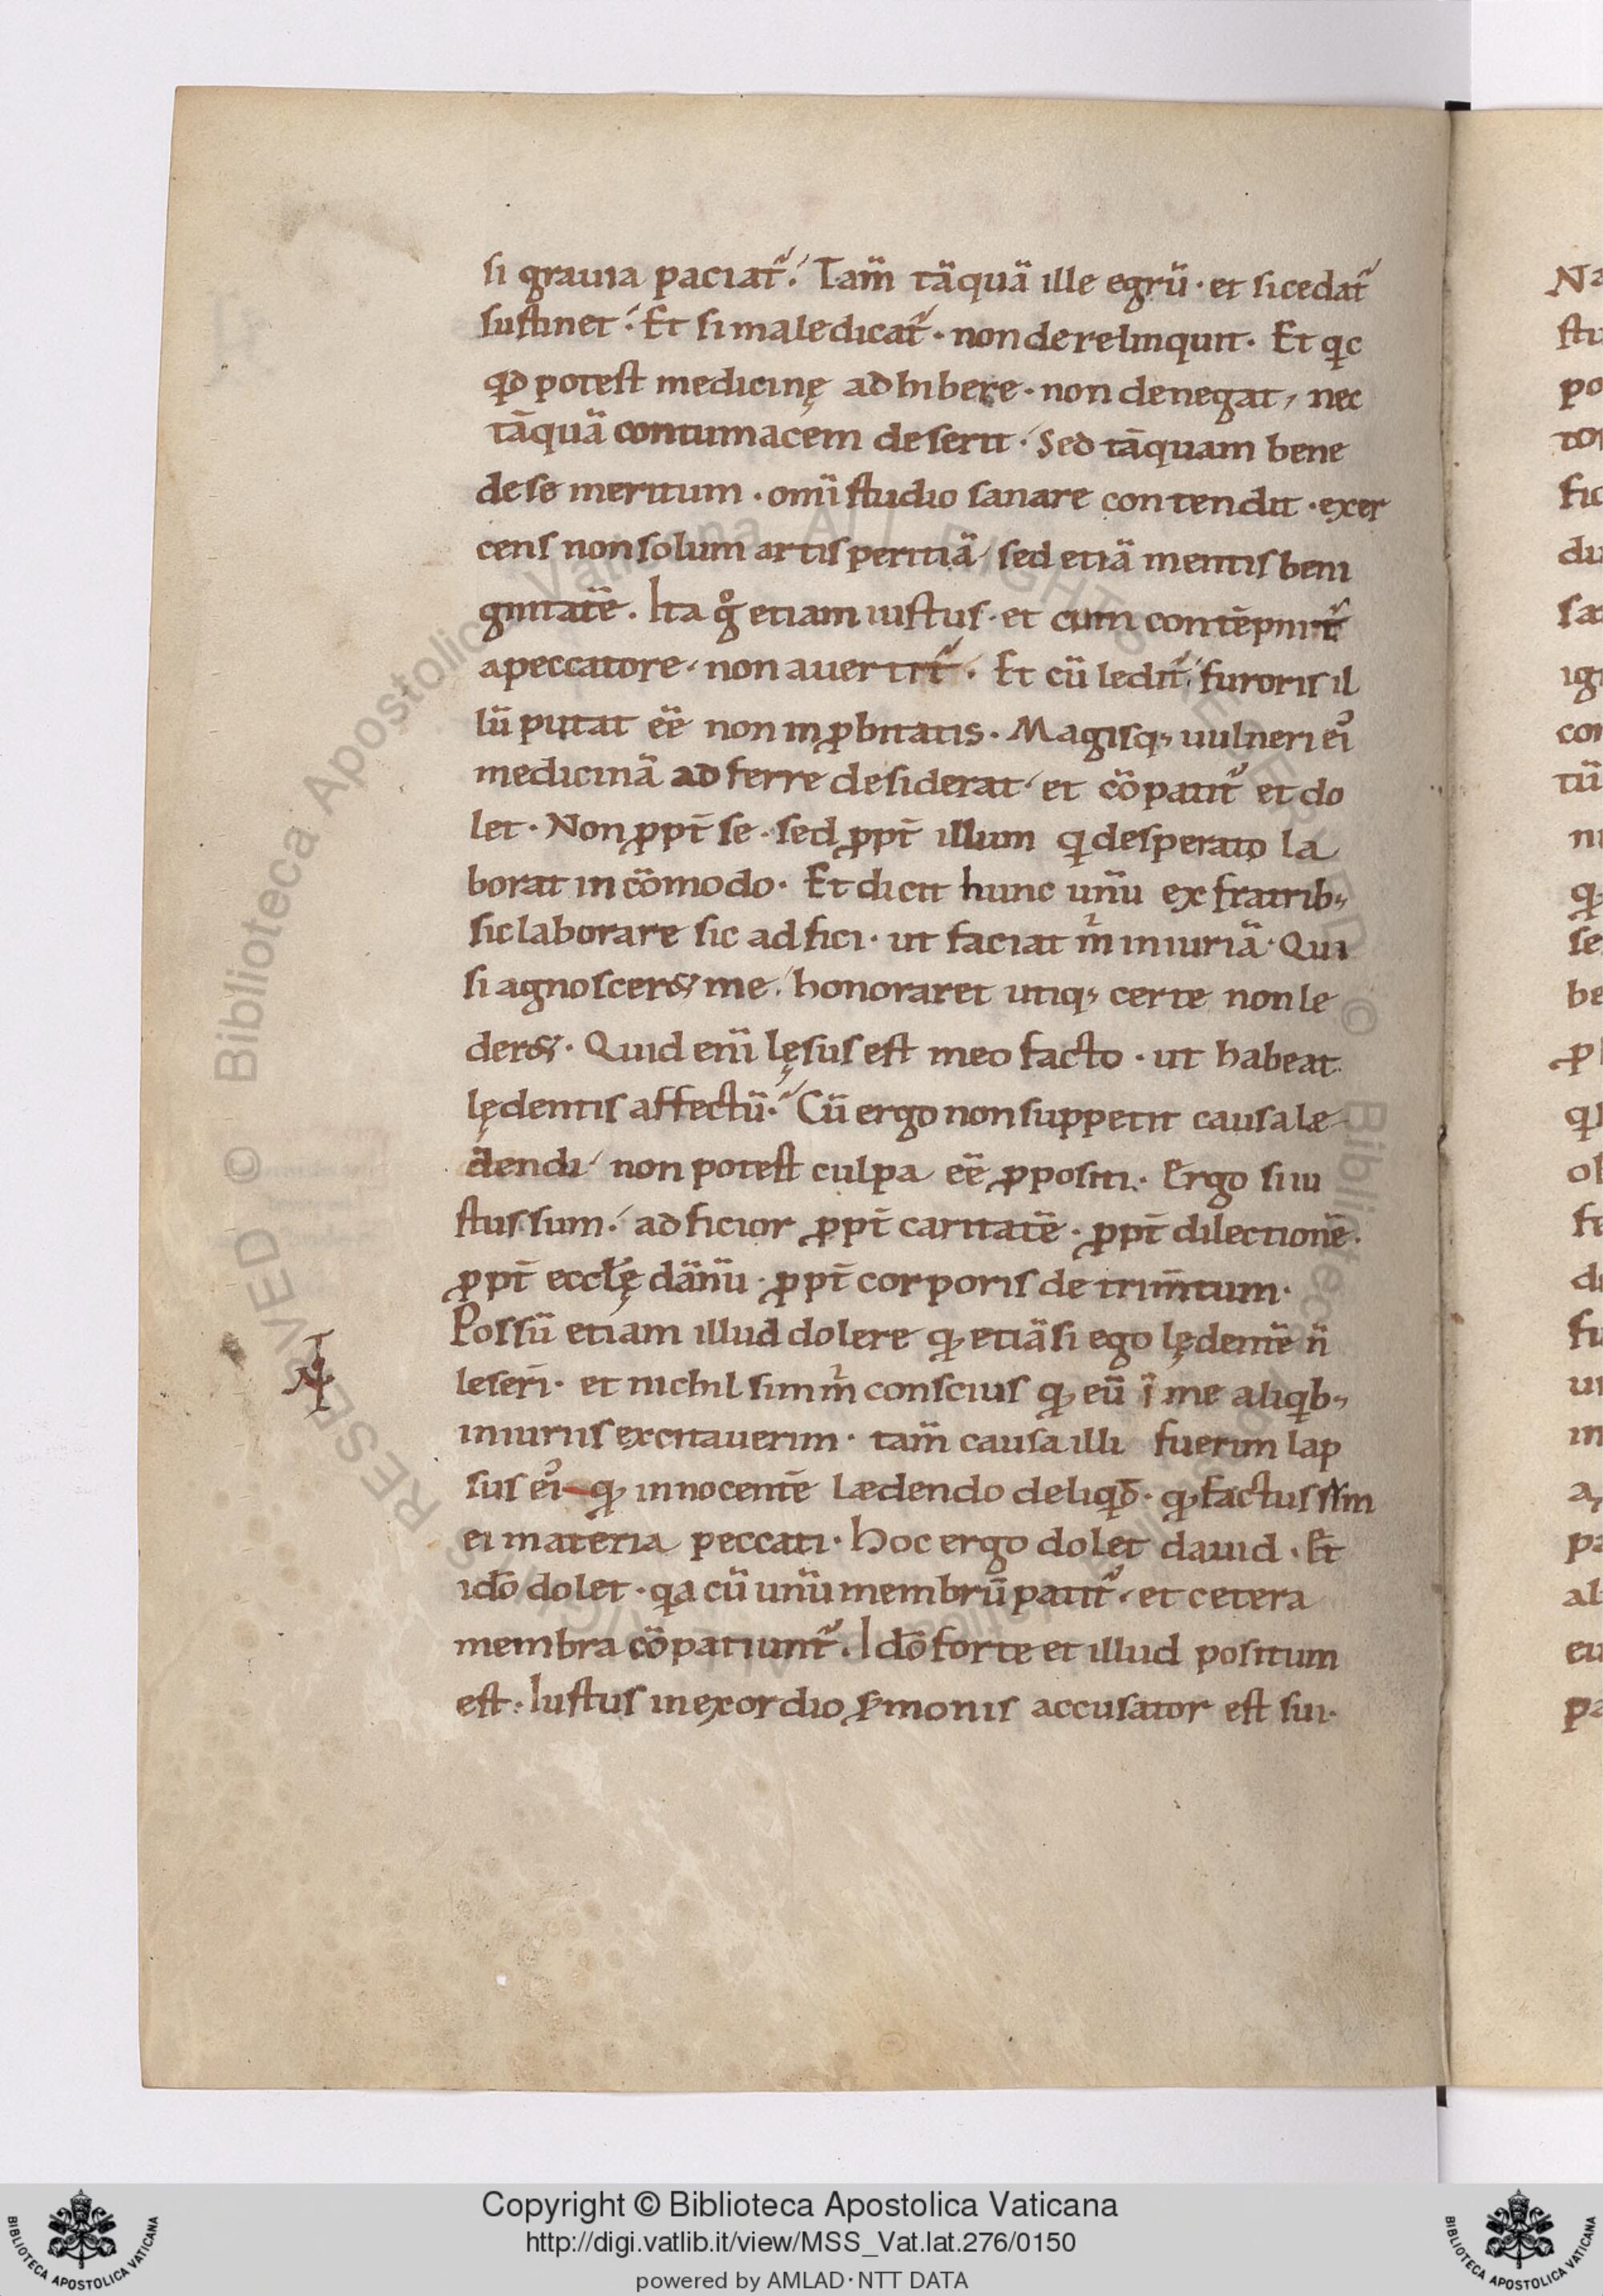 si grauia paciat᷑. Tam̄ tāquā ille egrū · et si cedat᷑
sustinet. Et si maledicat᷑ · non derelinquit · Et qͥc
qd potest medicinę adhibere · non denegat, nec
tāquā contumacem deserit. Sed tāquam bene
de se meritum · omi studio sanare contendit · exer
cens non solum artis peritiā sed etiā mentis beni
gnitatē. Ita gͦ etiam iustus · et cum contēpnit᷑
a peccatore, non auertit᷑. Et cū ledit᷑, furoris il
lū putat ēē non inꝓbitatis. Magisq; uulneri eiꝰ
medicinā adferre desiderat et cōpatit᷑ et do
let. Non ꝓpt̄ se · sed ꝓpt̄ illum q desperato la
borat incōmodo. Et dicit hunc unū ex fratrib;
sic laborare sic adfici · ut faciat mͥ iniuriā. Qui
si agnoscer& me, honoraret utiq; certe non le
der&. Quid eni lęsus est meo facto · ut habeat
lędentis affectū. Cū ergo non suppetit causa læ
dendi non potest culpa ēē ꝓpositi. Ergo si iu
stus sum. adficior ꝓpt̄ caritatē · ꝓpt̄ dilectionē.
ꝓpt̄ eccłę dānū · ꝓpt̄ corporis detrim̄tum.
Possū etiam illud dolere qđ etiāsi ego lędentē n̄
leseri · et nichil sim mͥ conscius qđ eū ī me aliqb;
iniuriis excitauerim · tam̄ causa illi fuerim lap
sus eiꝰ qđ innocentē lædendo deliqͦ · qđ factus sum
ei materia peccati. Hoc ergo dolet dauid. Et
idō dolet · qa cū unū membrū patit᷑, et cetera
membra cōpatiunt᷑. Idō forte et illud positum
est. Iustus in exordio s̄monis accusator est sui.
Copyright © Biblioteca Apostolica Vaticana
http://digi.vatlib.it/view/MSS_Vat.lat.276/0150
powered by AMLAD·NTT DATA